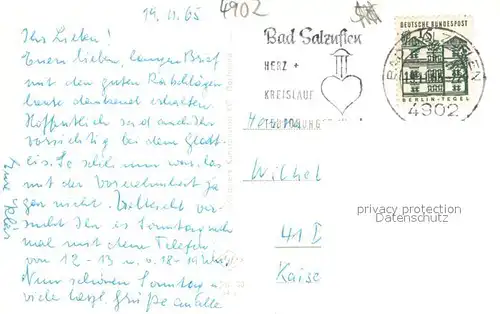 19.11.65
4902
Ihr Lieben!
Euren lieben, langen Brief
mit den guten Ratschlägen
heute dankend erhalten.
Hoffentlich seid auch Ihr
vorsichtig bei dem Glatt-
eis. So schlimm war das
mit der
ja
gar nicht. Vielleicht ver-
sucht Ihr es Sonntag noch
mal mit dem Telefon,
von 12-13 u. v. 18-19 Uhr
Nun schönen Sonntag u.
viele herzl. Grüße an alle
Eure
Bad Salzuflen
HERZ +
KREISLAUF
DEUTSCHE BUNDESPOST
15
BERLIN-TEGEL
BAD SALZUFLEN
4902
Wilhel
41 I
Kaise
privacy protection
Datenschutz